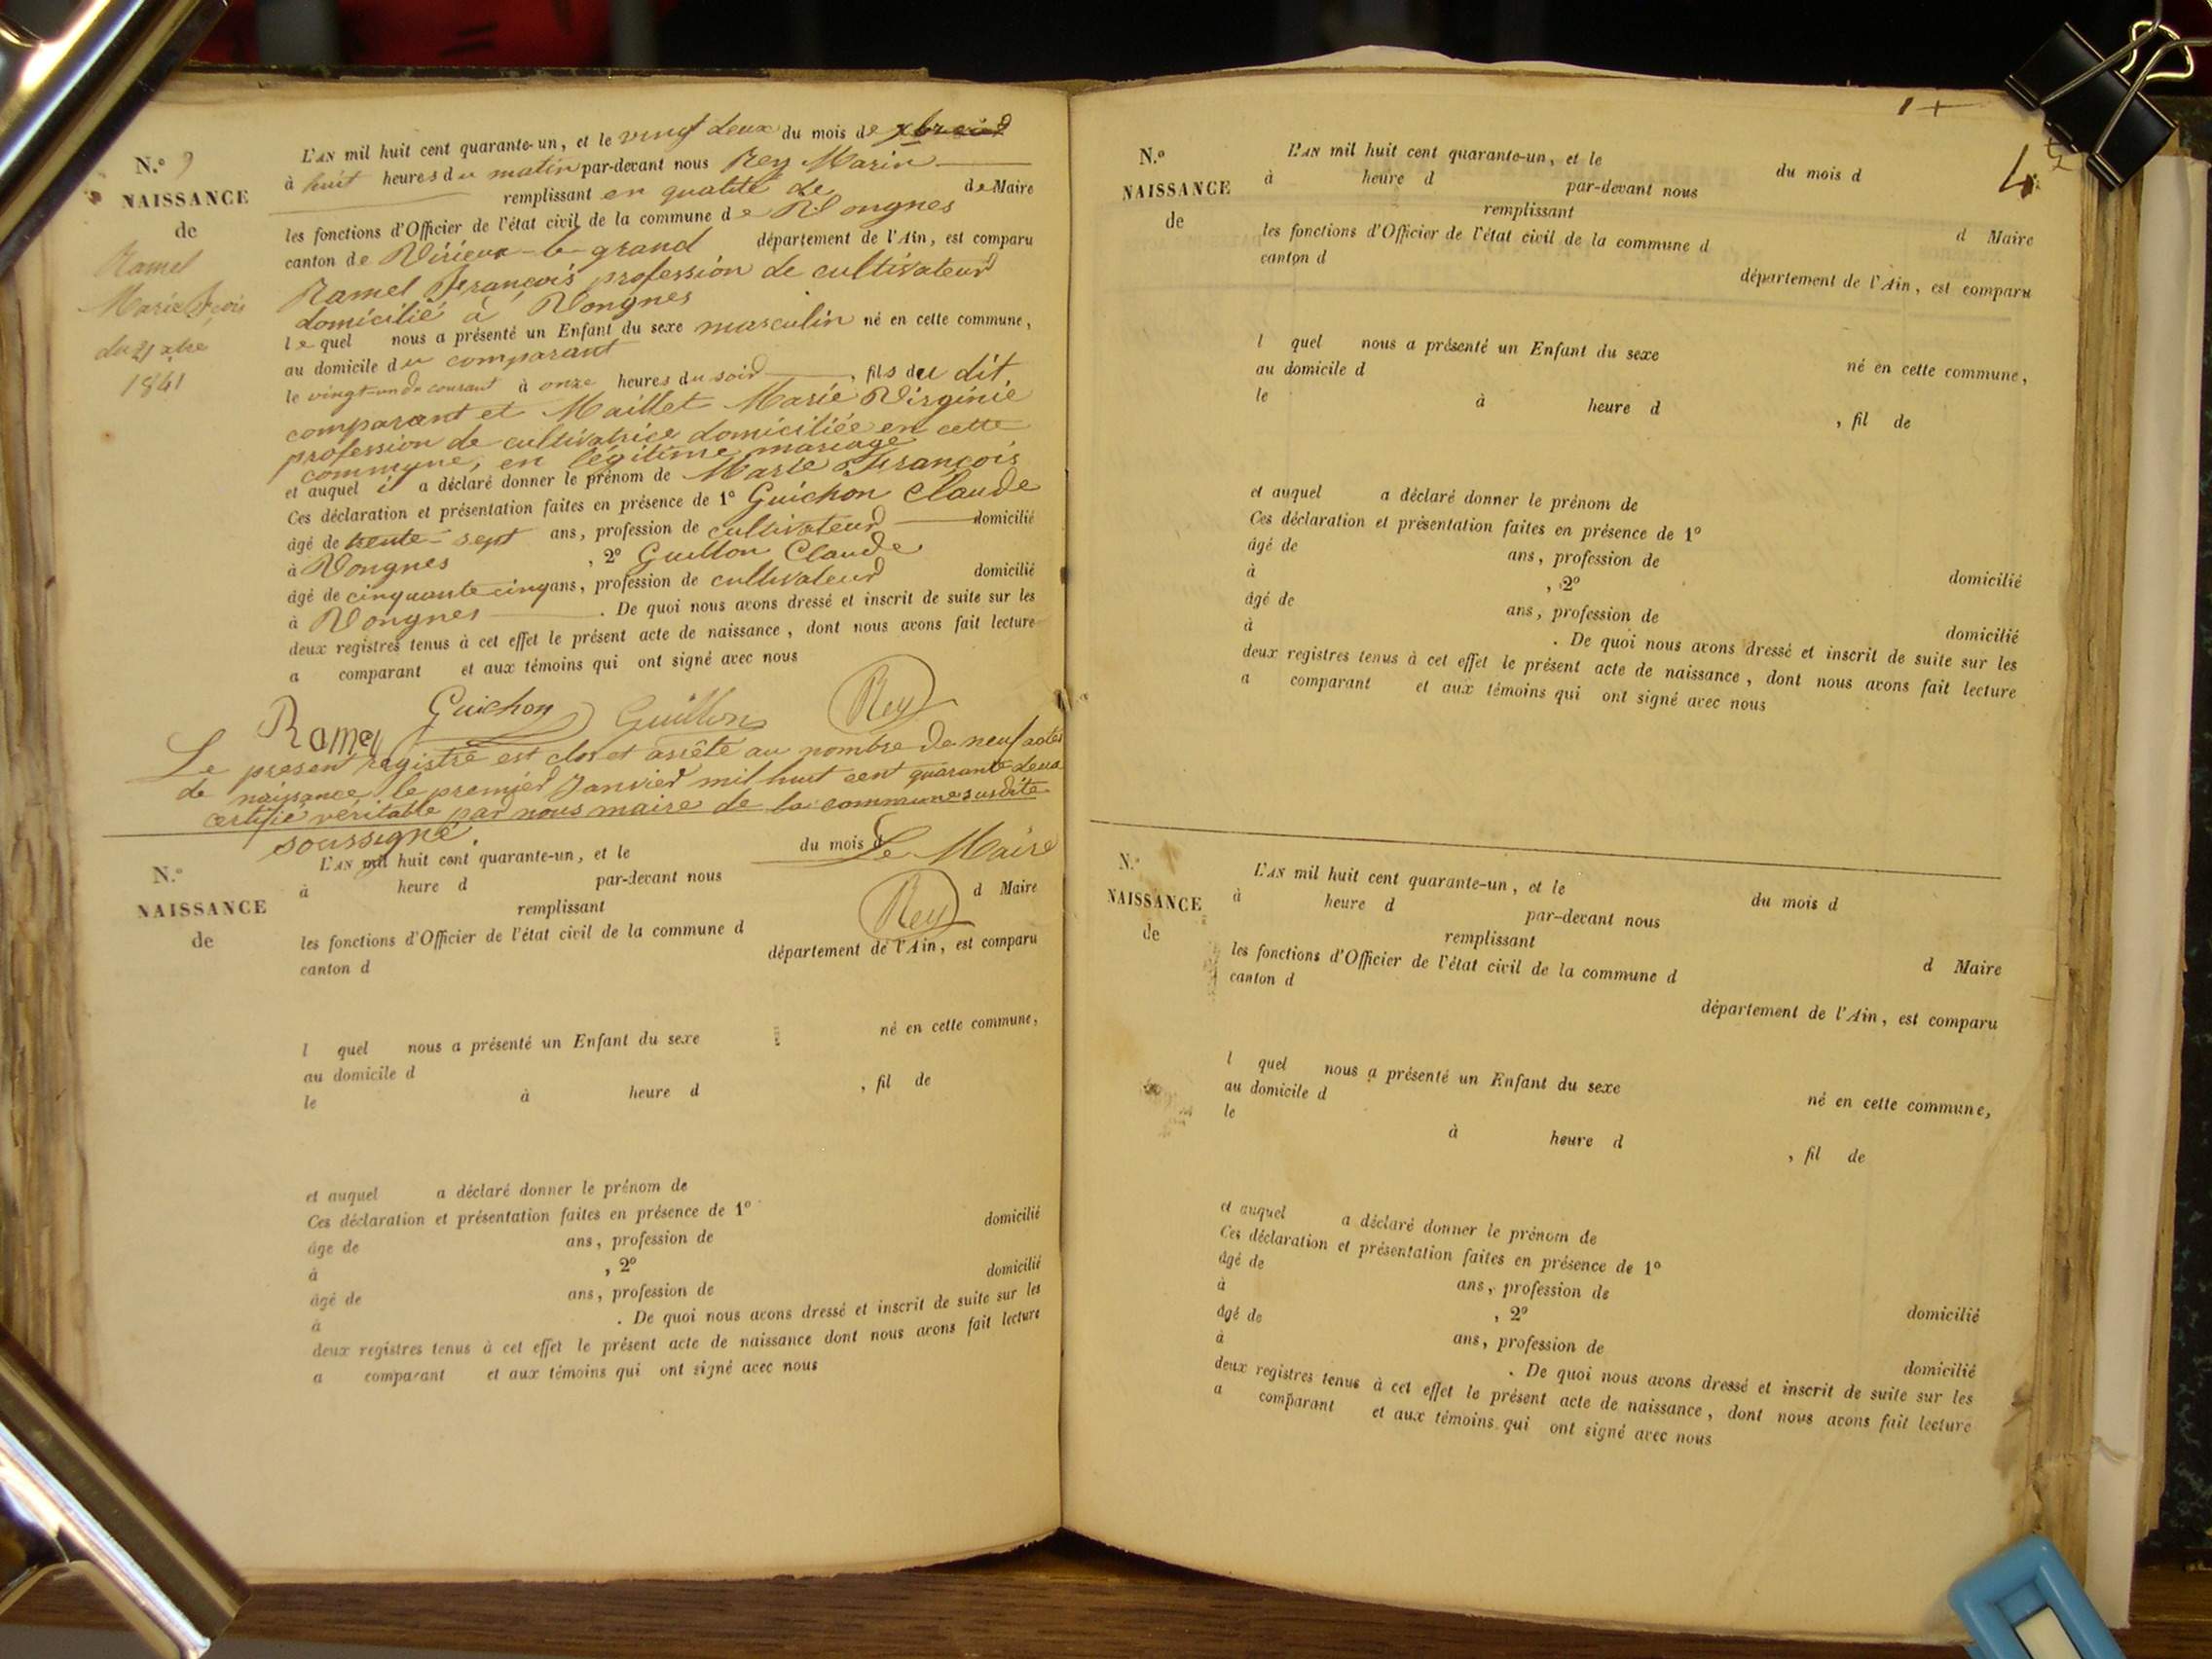 N.º 9
NAISSANCE
de
Ramel
Marie fçois
du 21 xbre
1841
L'AN mil huit cent quarante-un, et le vingt deux du mois de xbre
à huit heures du matin par-devant nous Rey Marin
remplissant en qualité de de Maire
les fonctions d'Officier de l'état civil de la commune de Vongnes
canton de Virieux-le-grand département de l'Ain, est comparu
Ramel François profession de cultivateur
domicilié à Vongnes
lequel nous a présenté un Enfant du sexe masculin né en cette commune,
au domicile du comparant
le vingt-un du courant à onze heures du soir, fils deu dit
comparant et Maillet Marie Virginie
profession de cultivatrice domiciliée en cette
commune, en légitime mariage
et auquel il a déclaré donner le prénom de Marie François
Ces déclaration et présentation faites en présence de 1º Guichon Claude
âgé de trente-sept ans, profession de cultivateur domicilié
à Vongnes, 2º Guillon Claude
âgé de cinquante cinq ans, profession de cultivateur domicilié
à Vongnes. De quoi nous avons dressé et inscrit de suite sur les
deux registres tenus à cet effet le présent acte de naissance, dont nous avons fait lecture
a comparant et aux témoins qui ont signé avec nous
Ramel Guichon Guillon Rey
Le présent registre est clos et arrêté au nombre de neuf actes
de naissance le premier Janvier mil huit cent quarante deux
certifié véritable par nous maire de la commune susdite
soussigné.
Le Maire
Rey
N.º
NAISSANCE
de
L'AN mil huit cent quarante-un, et le du mois d
à heure d par-devant nous
remplissant d Maire
les fonctions d'Officier de l'état civil de la commune d
canton d département de l'Ain, est comparu
l quel nous a présenté un Enfant du sexe né en cette commune,
au domicile d
le à heure d , fil de
et auquel a déclaré donner le prénom de
Ces déclaration et présentation faites en présence de 1º
âge de ans, profession de domicilié
à , 2º
âgé de ans, profession de domicilié
à . De quoi nous avons dressé et inscrit de suite sur les
deux registres tenus à cet effet le présent acte de naissance dont nous avons fait lecture
a comparant et aux témoins qui ont signé avec nous
4
N.º
NAISSANCE
de
L'AN mil huit cent quarante-un, et le du mois d
à heure d par-devant nous
remplissant d Maire
les fonctions d'Officier de l'état civil de la commune d
canton d département de l'Ain, est comparu
l quel nous a présenté un Enfant du sexe né en cette commune,
au domicile d
le à heure d , fil de
et auquel a déclaré donner le prénom de
Ces déclaration et présentation faites en présence de 1º
âgé de ans, profession de domicilié
à , 2º
âgé de ans, profession de domicilié
à . De quoi nous avons dressé et inscrit de suite sur les
deux registres tenus à cet effet le présent acte de naissance, dont nous avons fait lecture
a comparant et aux témoins qui ont signé avec nous
N.º
NAISSANCE
de
L'AN mil huit cent quarante-un, et le du mois d
à heure d par-devant nous
remplissant d Maire
les fonctions d'Officier de l'état civil de la commune d
canton d département de l'Ain, est comparu
l quel nous a présenté un Enfant du sexe né en cette commune,
au domicile d
le à heure d , fil de
et auquel a déclaré donner le prénom de
Ces déclaration et présentation faites en présence de 1º
âgé de ans, profession de domicilié
à , 2º
âgé de ans, profession de domicilié
à . De quoi nous avons dressé et inscrit de suite sur les
deux registres tenus à cet effet le présent acte de naissance, dont nous avons fait lecture
a comparant et aux témoins qui ont signé avec nous